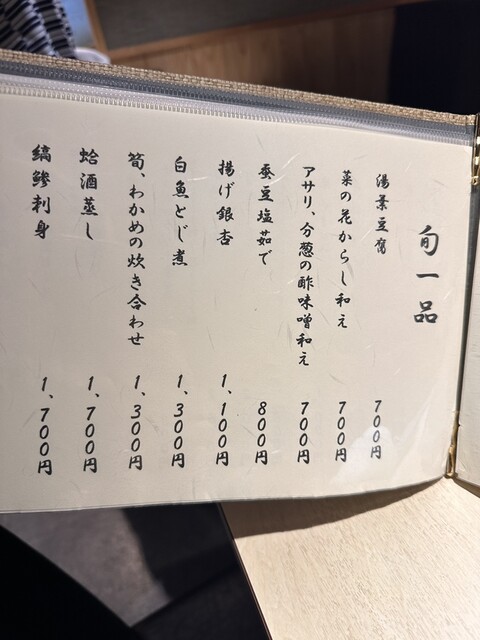 旬一品
湯葉豆腐 700円
菜の花からし和え 700円
アサリ、分葱の酢味噌和え 700円
蚕豆塩茹で 800円
揚げ銀杏 1,100円
白魚とじ煮 1,300円
筍、わかめの炊き合わせ 1,300円
蛤酒蒸し 1,700円
縞鯵刺身 1,700円